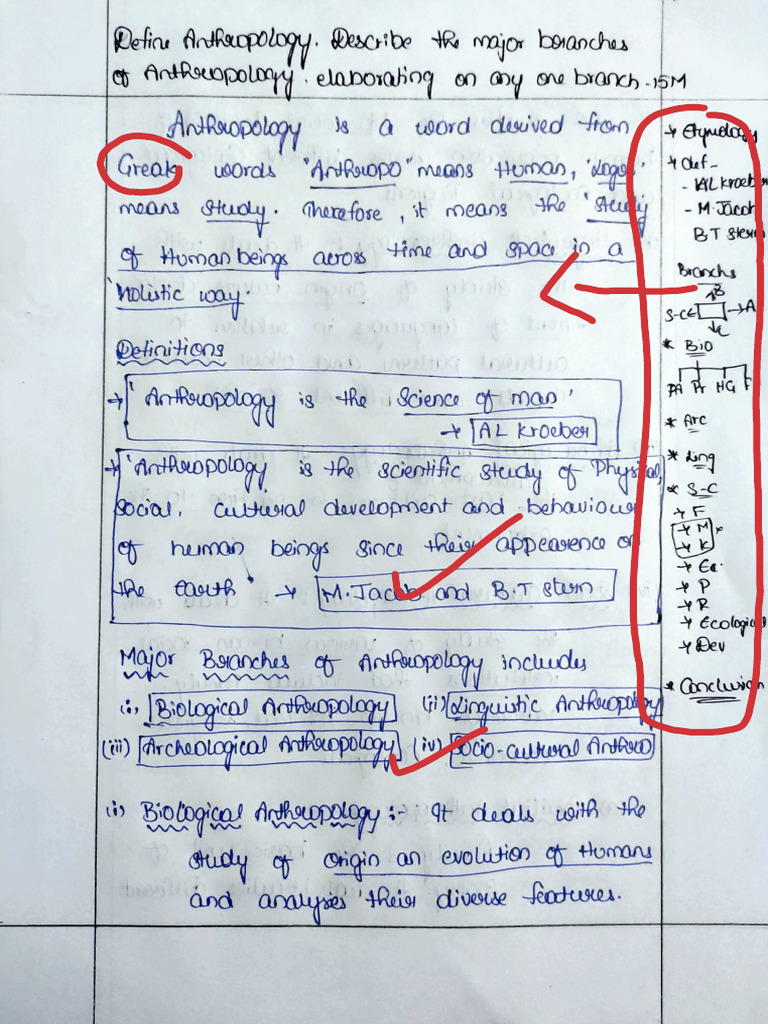 Define Anthropology. Describe the major branches
of Anthropology. elaborating on any one branch - 15M
Anthropology is a word derived from
Greak words "Anthropo" means Human, 'Logos'
means study. Therefore, it means the 'study
of Human beings across time and space in a
holistic way.
Definitions
→ 'Anthropology is the Science of man'
→ AL Kroeber
→ 'Anthropology is the scientific study of Physical,
Social, cultural development and behaviour
of human beings since their appearence on
the Earth' → M.Jacob and B.T Stern
Major Branches of Anthropology includes
(i), Biological Anthropology (ii) Linguistic Anthropology
(iii) Archeological Anthropology (iv) Socio-cultural Anthro
(i) Biological Anthropology :- It deals with the
study of origin an evolution of Humans
and analyses their diverse features.
→ Etymology
→ def -
- AL Kroeber
- M. Jacob
B.T Stern
Branchs
B
S-C ← → A
L
* Bio
PA Pr HG F
* Arc
* Ling
* S-C
→ F
→ M
→ K
→ Ec.
→ P
→ R
→ Ecological
→ Dev
* Conclusion